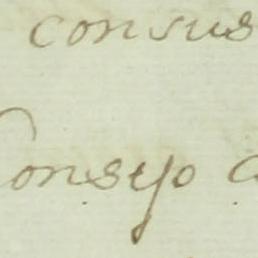 consus
Consejo